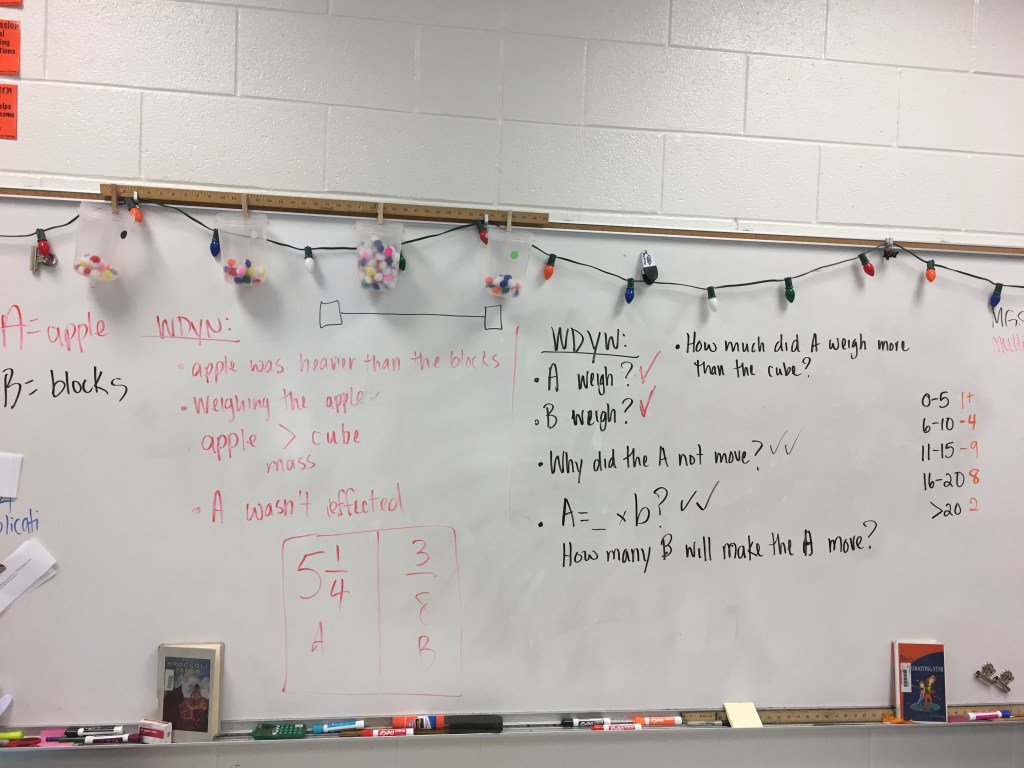 A= apple
B= blocks
WDYN:
• apple was heavier than the blocks
• Weighing the apple
apple > cube
mass
• A wasn't effected
5 1/4
A
3
B
WDYW:
• A weigh? ✓
• B weigh? ✓
• Why did the A not move? ✓✓
• A=_ xb? ✓✓
How many B will make the A move?
• How much did A weigh more
than the cube?
0-5 1+
6-10 -4
11-15 -9
16-20 8
>20 2
BROCCOLI
SHOOTING STAR
EXPO